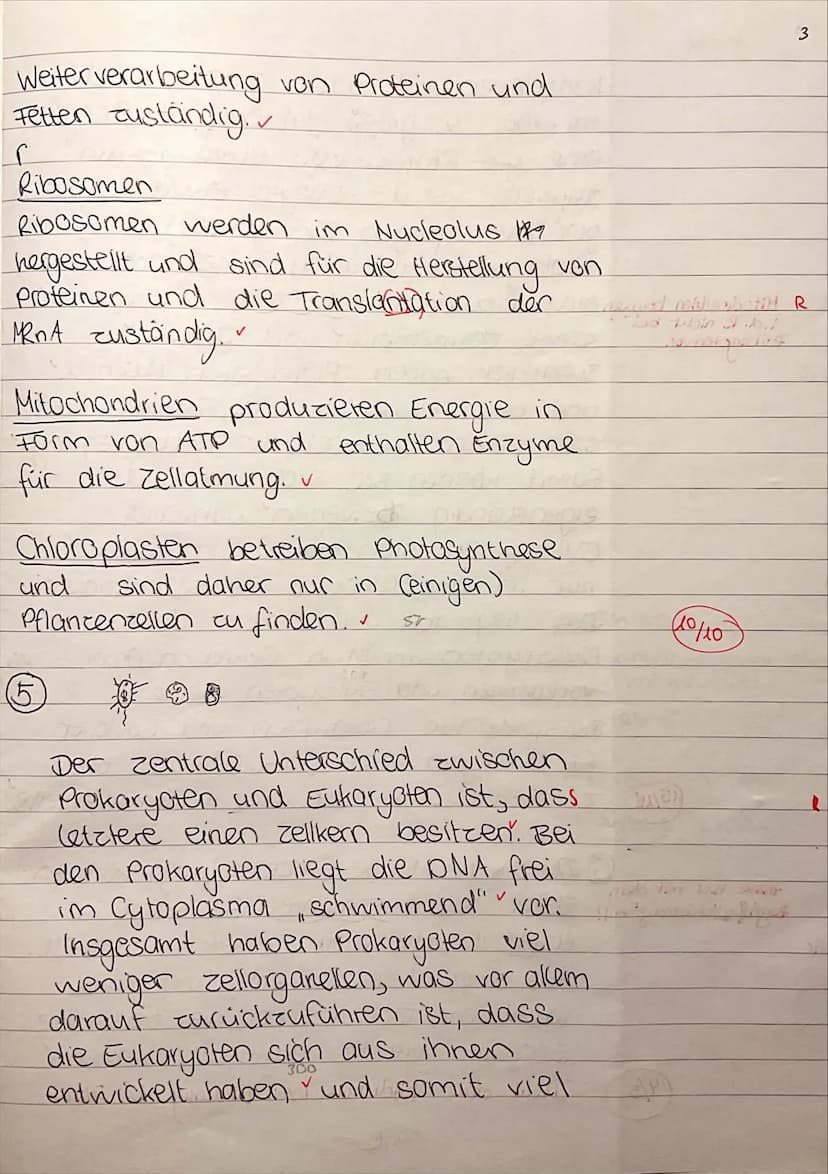 3
Weiterverarbeitung von Proteinen und
Fetten zuständig. ✓
Ribosomen
Ribosomen werden im Nucleolus
hergestellt und sind für die Herstellung von
Proteinen und die Translantation der R
MRnA zuständig. ✓
Mitochondrien produzieren Energie in
Form von ATP und enthalten Enzyme
für die Zellatmung. ✓
Chloroplasten betreiben Photosynthese
und sind daher nur in (einigen)
Pflanzenzellen zu finden. ✓
10/10
5
Der zentrale Unterschied zwischen
Prokaryoten und Eukaryoten ist, dass
letztere einen Zellkern besitzen ✓. Bei
den Prokaryoten liegt die DNA frei
im Cytoplasma „schwimmend" ✓ vor.
Insgesamt haben Prokaryoten viel
weniger Zellorganellen, was vor allem
darauf zurückzuführen ist, dass
die Eukaryoten sich aus ihnen
300
entwickelt haben ✓ und somit viel